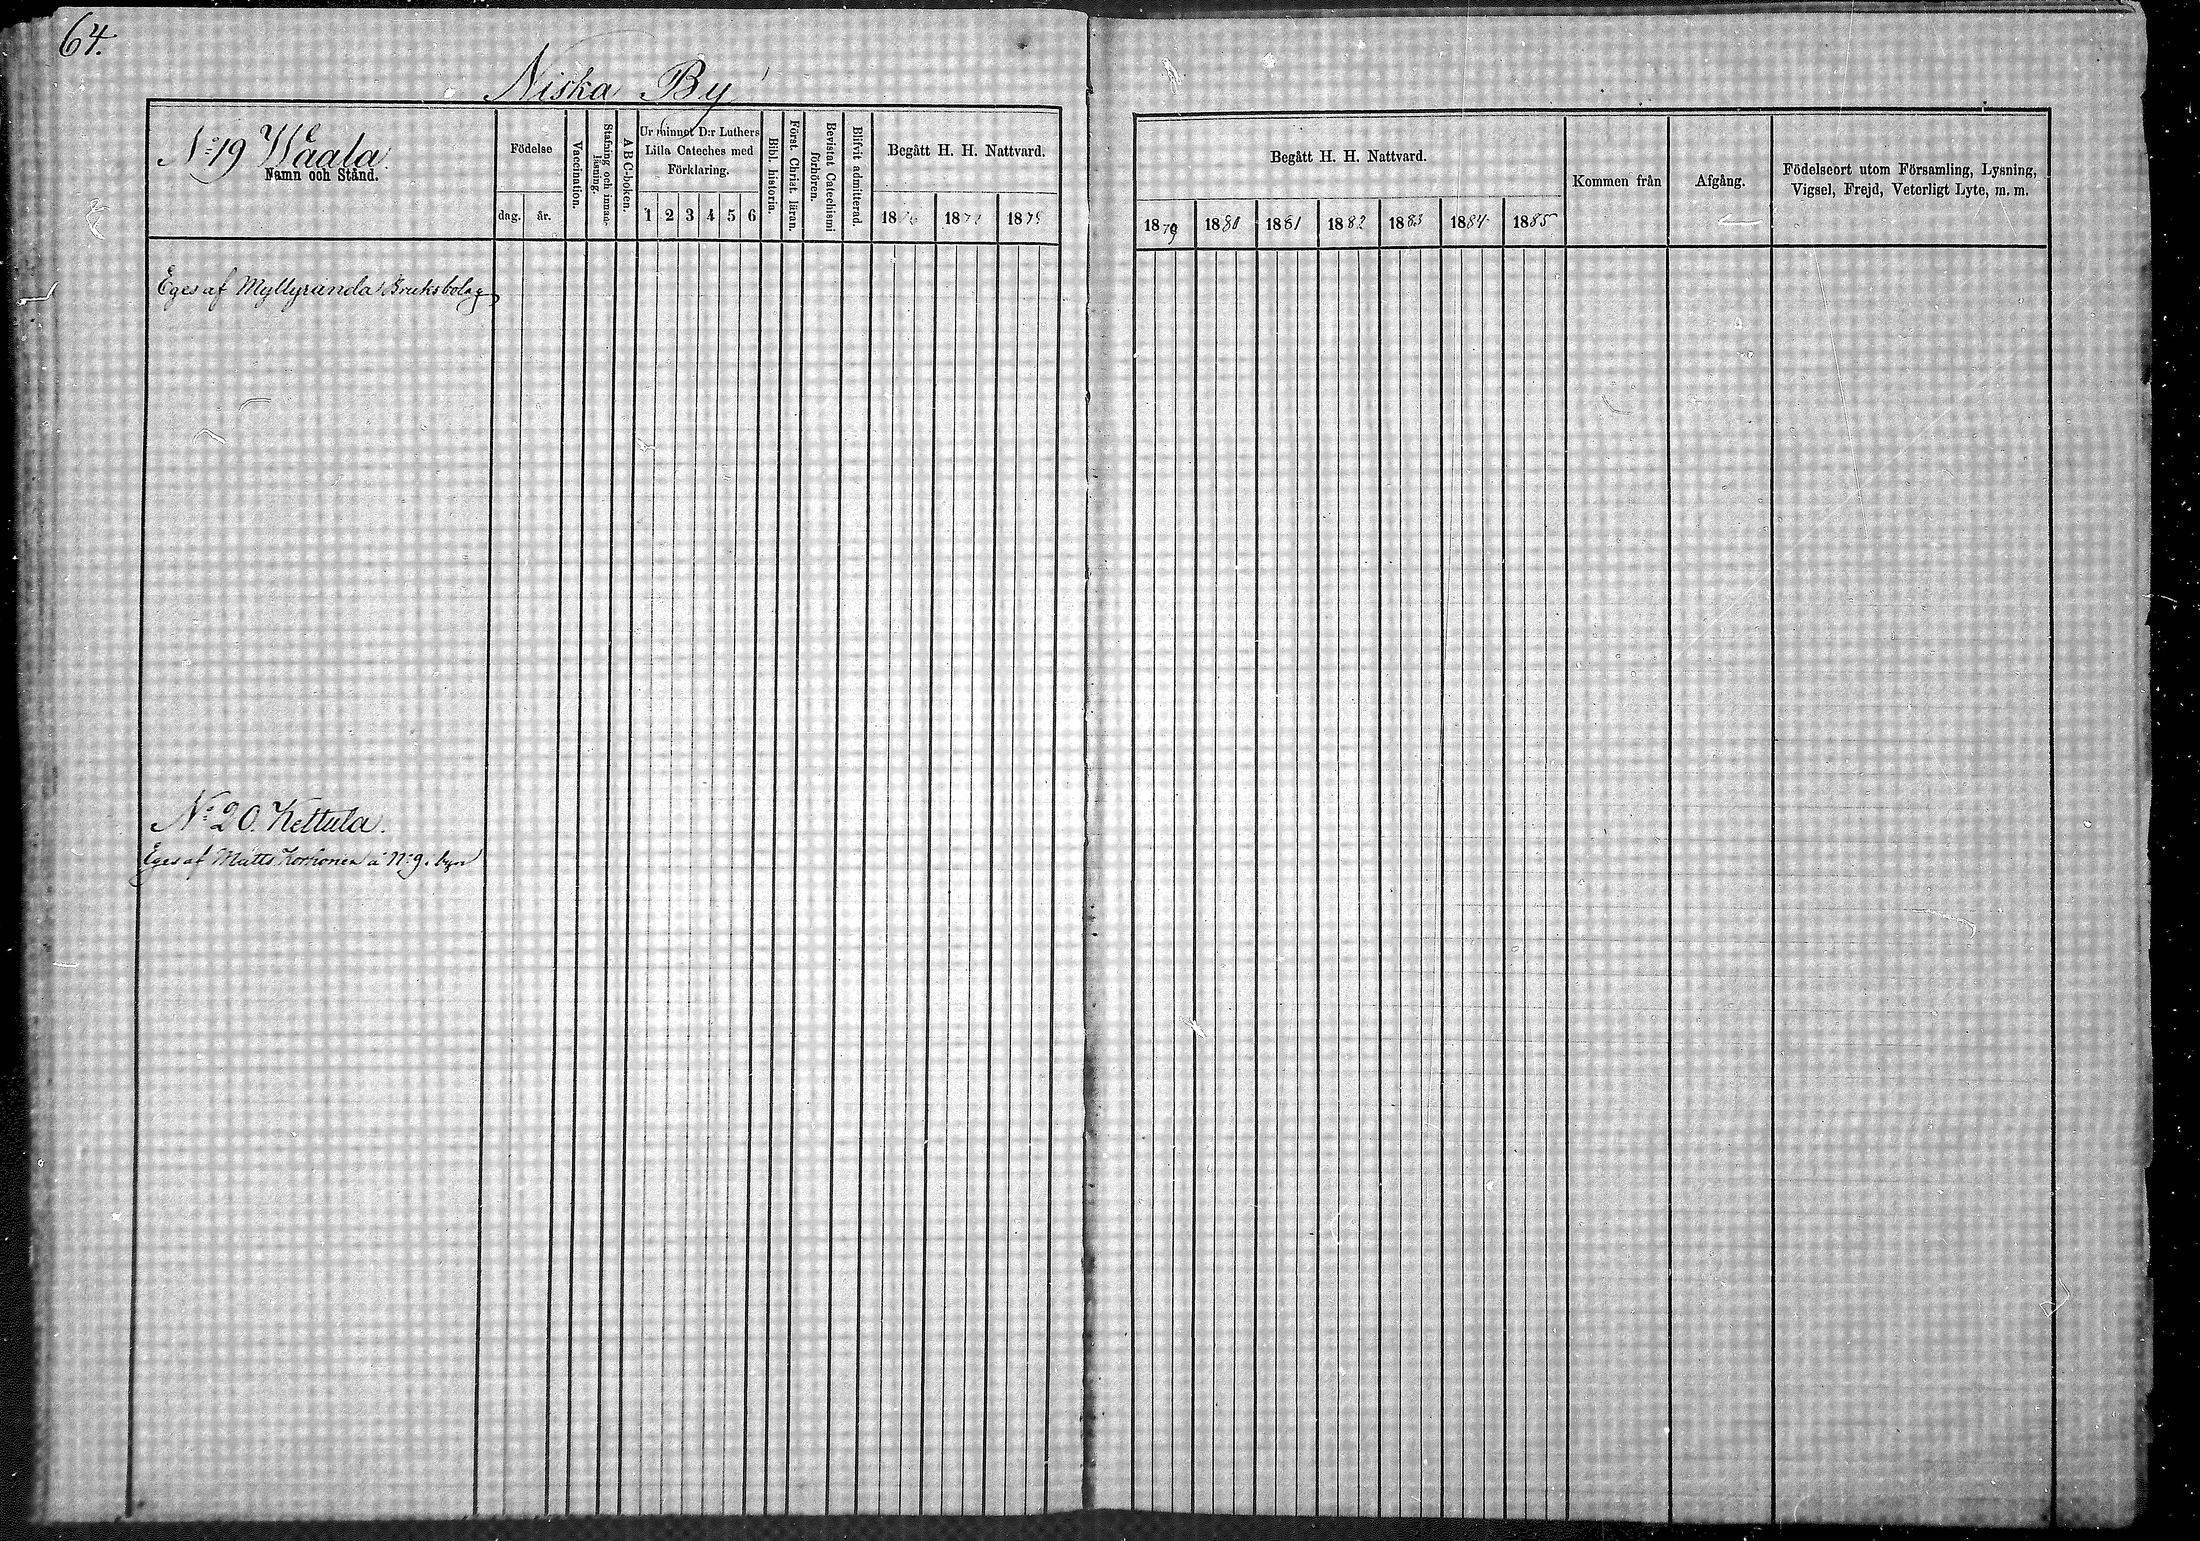 64.
Niska By
No 19 Waala
Namn och Stånd.
Födelse
dag.
år.
Vaccination.
Stafning och innan-
läsning.
ABC-boken.
Ur minnet D:r Luthers
Lilla Cateches med
Förklaring.
1 2 3 4 5 6
Bibl. historia.
Först. Christ. läran.
Bevistat Catechismi
förhören.
Blifvit admitterad.
Begått H. H. Nattvard.
1876 1877 1878
Eges af Myllyranda Bruksbolag
No 20. Kettula.
Eges af Matts Korhonen å No 9. byn
Begått H. H. Nattvard.
1879 1880 1881 1882 1883 1884 1885
Kommen från
Afgång.
Födelseort utom Församling, Lysning,
Vigsel, Frejd, Veterligt Lyte, m. m.